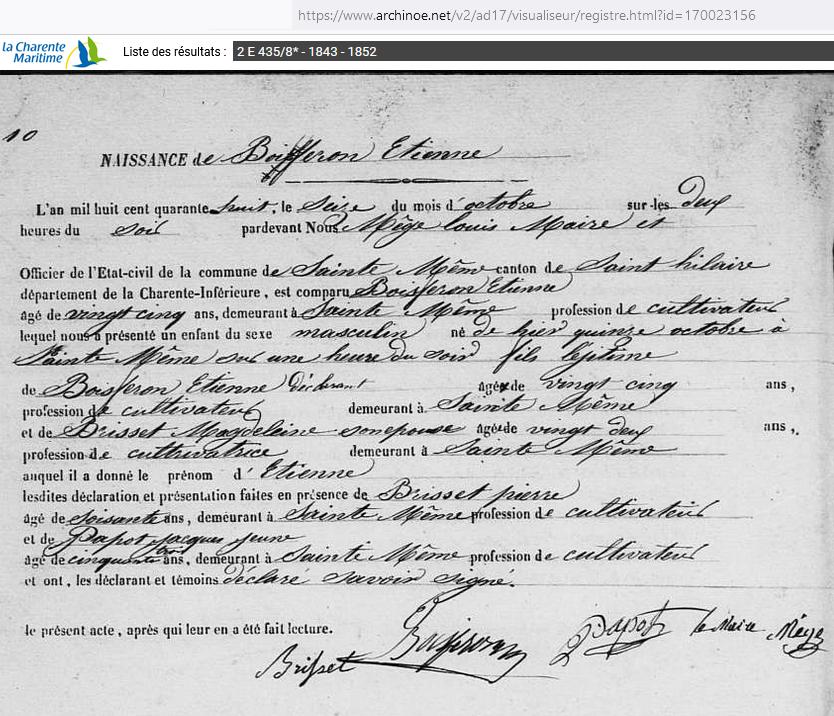 https://www.archinoe.net/v2/ad17/visualiseur/registre.html?id=170023156
la Charente Maritime
Liste des résultats : 2 E 435/8* - 1843 - 1852
10
NAISSANCE de Boisferon Etienne
L'an mil huit cent quarante huit, le seize du mois d'octobre sur les deux
heures du soir pardevant Nous Mêge louis Maire et
Officier de l'Etat-civil de la commune de Sainte Même canton de Saint hilaire
département de la Charente-Inférieure, est comparu Boisferon Etienne
âgé de vingt cinq ans, demeurant à Sainte Même profession de cultivateur
lequel nous a présenté un enfant du sexe masculin né de hier quinze octobre à
Sainte Même sur une heure du soir fils légitime
de Boisferon Etienne déclarant âgé de vingt cinq ans,
profession de cultivateur demeurant à Sainte Même
et de Brisset Magdeleine son epouse âgée de vingt deux ans,
profession de cultivatrice demeurant à Sainte Même
auquel il a donné le prénom d'Etienne
lesdites déclaration et présentation faites en présence de Brisset pierre
âgé de soisante ans, demeurant à Sainte Même profession de cultivateur
et de Papot jacques jeune
âgé de cinquante trois ans, demeurant à Sainte Même profession de cultivateur
et ont, les déclarant et témoins déclare savoir signé.
le présent acte, après qui leur en a été fait lecture.
Brisset Boisferon Papot le Maire Mêge